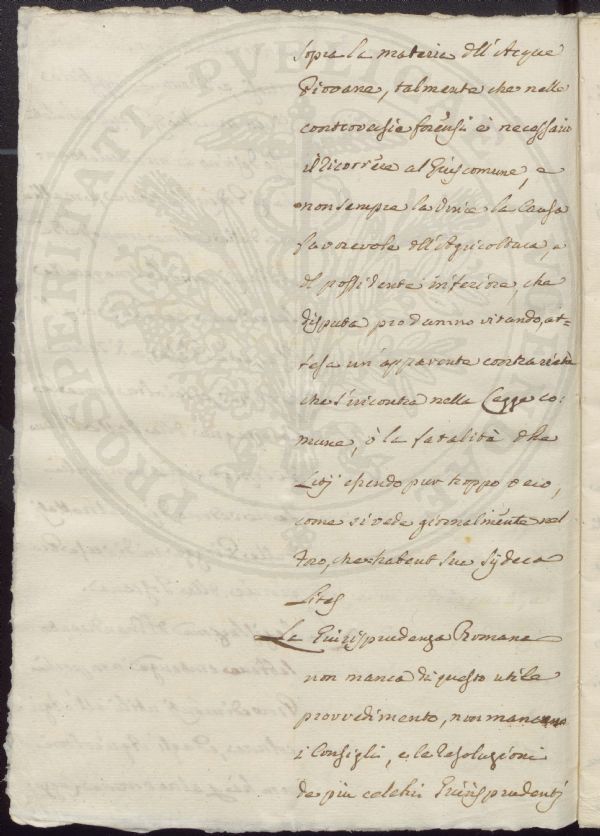 sopra la materia dell'Acque
Piovane, talmente che nelle
controversie forensi è necessario
il ricorrere al Gius comune, e
non sempre la vince la Causa
favorevole dell'Agricoltura, e
del possidente inferiore, che
disputa pro damno vitando, at=
tesa un'apparente contrarietà
che s'incontra nella Legge co=
mune, ò la fatalità delle
Liti essendo pur troppo vero,
come si vede giornalmente nel
Foro, che habent sua sydera
Lites
La Giurisprudenza Romana
non manca di questo utile
provvedimento, non mancano
i Consigli, e le Resoluzioni
de più celebri Giurisprudenti
PROSPERITATI PVBLICAE